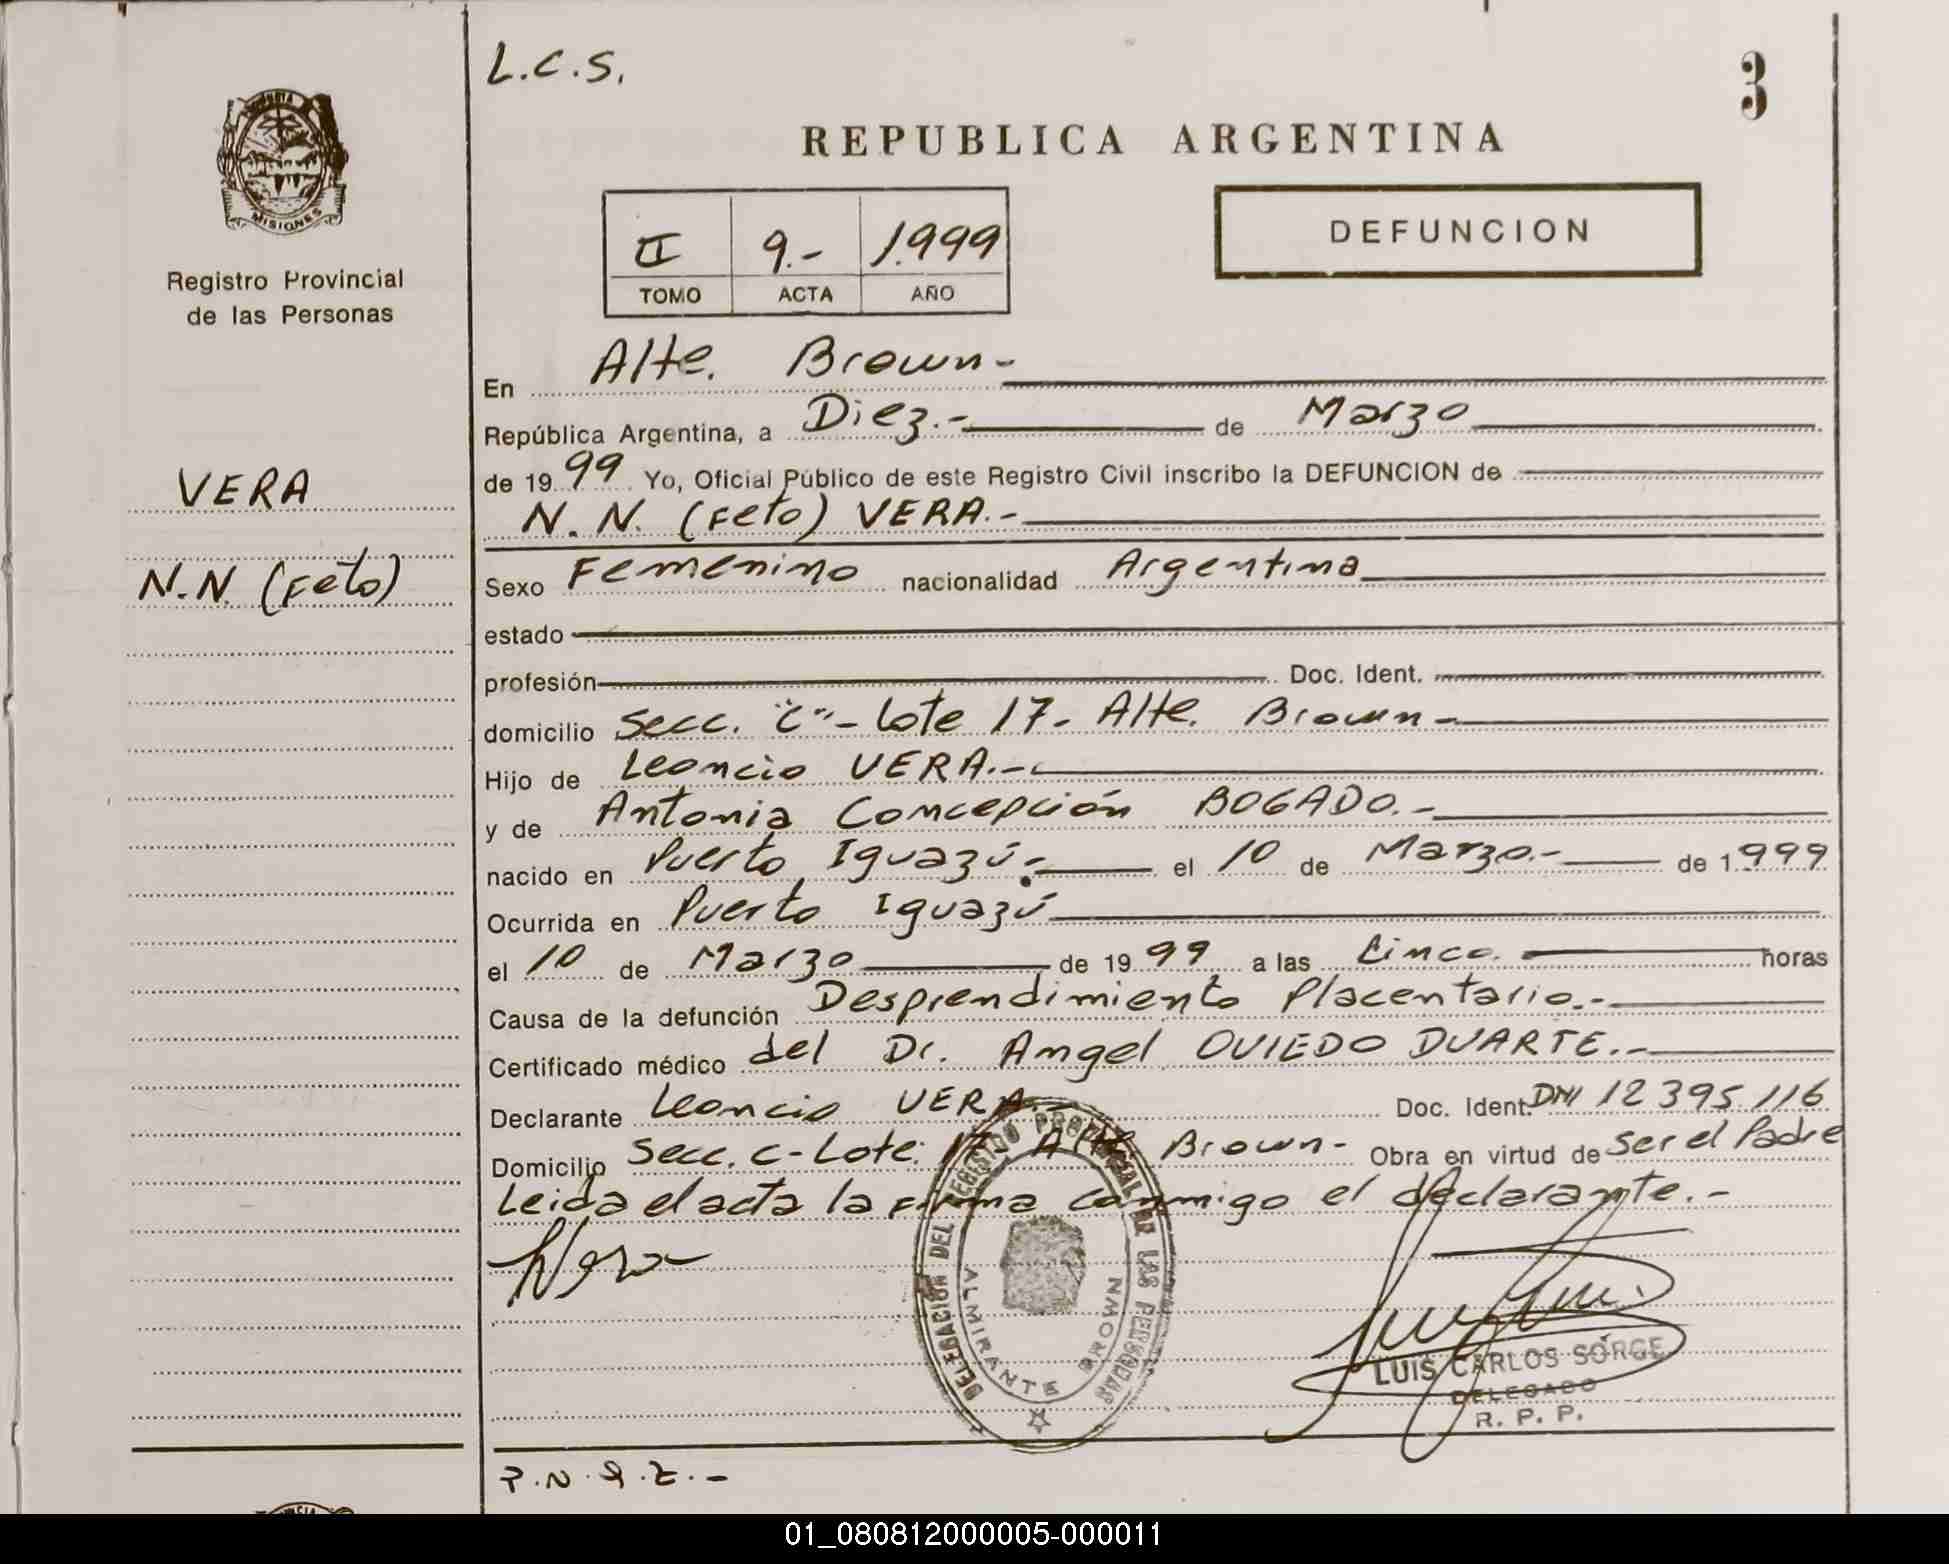 L.C.S.
3
REPUBLICA ARGENTINA
MISIONES
Registro Provincial
de las Personas
II 9.- 1.999
TOMO ACTA AÑO
DEFUNCION
VERA
N.N. (Feto)
En Alte. Brown-
República Argentina, a Diez.- de Marzo
de 1999 Yo, Oficial Público de este Registro Civil inscribo la DEFUNCION de
N. N. (Feto) VERA.-
Sexo Femenino nacionalidad Argentina
estado
profesión Doc. Ident.
domicilio Secc. "C"- Lote 17- Alte. Brown-
Hijo de Leoncio VERA.-
y de Antonia Concepción BOGADO.-
nacido en Puerto Iguazú.- el 10 de Marzo.- de 1.999
Ocurrida en Puerto Iguazú
el 10 de Marzo de 1999 a las Cinco. horas
Causa de la defunción Desprendimiento Placentario.-
Certificado médico del Dr. Angel OVIEDO DUARTE.-
Declarante Leoncio VERA.- Doc. Ident. DNI 12 395 116
Domicilio Secc. C- Lote: 17- Alte. Brown- Obra en virtud de ser el Padre
Leida el acta la firma conmigo el declarante.-
LVera
DELEGACION DEL REGISTRO PROVINCIAL DE LAS PERSONAS
ALMIRANTE BROWN
LUIS CARLOS SORGE
DELEGADO
R. P. P.
01_080812000005-000011